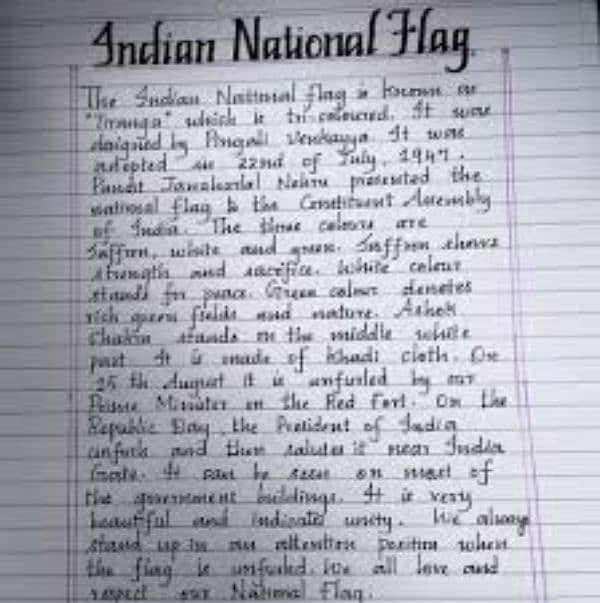 Indian National Flag.
The Indian National flag is known as
"Tiranga" which is tri-coloured. It was
designed by Pingali Venkayya. It was
adopted on 22nd of July, 1947.
Pandit Jawaharlal Nehru presented the
national flag to the Constituent Assembly
of India. The three colours are
Saffron, white and green. Saffron shows
strength and sacrifice. White colour
stands for peace. Green colour denotes
rich green fields and nature. Ashok
Chakra stands on the middle white
part. It is made of Khadi cloth. On
15 th August it is unfurled by our
Prime Minister on the Red Fort. On the
Republic Day, the President of India
unfurls and then salutes it near India
Gate. It can be seen on most of
the government buildings. It is very
beautiful and indicates unity. We always
stand up in an attention position when
the flag is unfurled. We all love and
respect our National Flag.